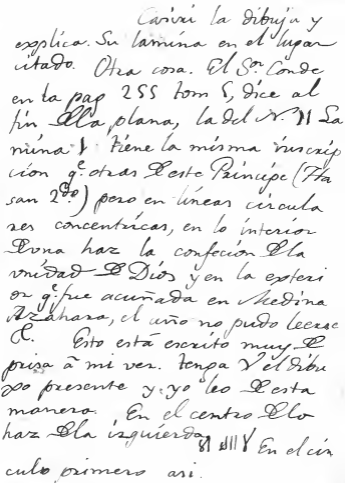 Casiri la dibuja y
explica. Su lamina en el lugar
citado. Otra cosa. El Sor. Conde
en la pag 255 tom 5, dice al
fin de la plana, la del N.º 11 La
mina 1 tiene la misma inscrip
cion q.e otras de este Principe (Ha
san 2.do) pero en lineas circula
res concentricas, en lo interior
de una haz la confecion de la
vnidad de Dios y en la exteri
or q.e fue acuñada en Medina
Azahara, el año no pudo leerse
&. Esto está escrito muy de
prisa à mi ver. tenga V el dibu
xo presente y yo leo de esta
manera. En el centro de lo
haz de la izquierda En el cir
culo primero asi.